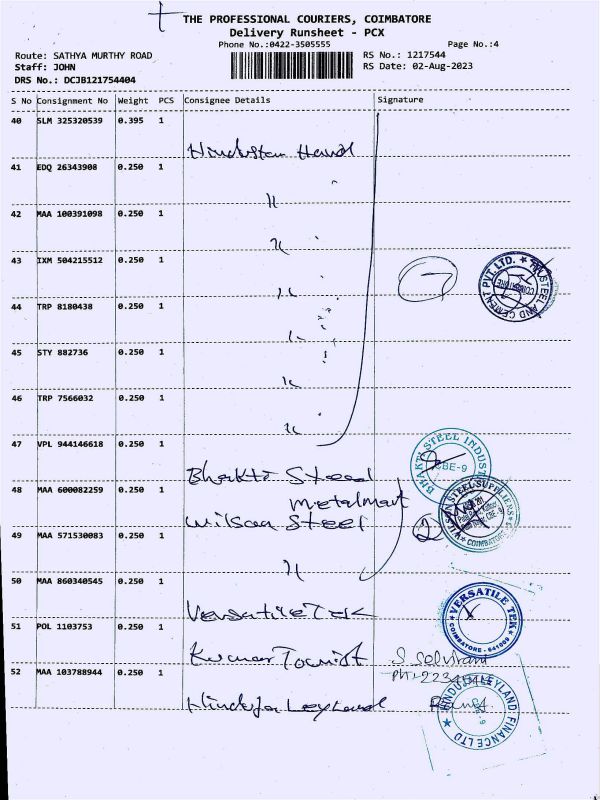 THE PROFESSIONAL COURIERS, COIMBATORE
Delivery Runsheet - PCX
Phone No.:0422-3505555 Page No.:4
Route: SATHYA MURTHY ROAD RS No.: 1217544
Staff: JOHN RS Date: 02-Aug-2023
DRS No.: DCJB121754404
S No Consignment No Weight PCS Consignee Details Signature
40 SLM 325320539 0.395 1
41 EDQ 26343908 0.250 1
42 MAA 100391098 0.250 1
43 IXM 504215512 0.250 1
44 TRP 8180438 0.250 1
45 STY 882736 0.250 1
46 TRP 7566032 0.250 1
47 VPL 944146618 0.250 1
BHAKTI STEEL INDUST
CBE-9
Bhakti Steel
48 MAA 600082259 0.250 1
Metalmart
Wilson Steel
WILSON STEEL SUPPLIERS
COIMBATORE
49 MAA 571530083 0.250 1
50 MAA 860340545 0.250 1
Versatile Tek
VERSATILE TEK
COIMBATORE - 641009
51 POL 1103753 0.250 1
Kumar Tourist S Selvirani
52 MAA 103788944 0.250 1
Hinduja Leyland
HINDUJA LEYLAND FINANCE LTD
STEEL AND CEMENT PVT. LTD.